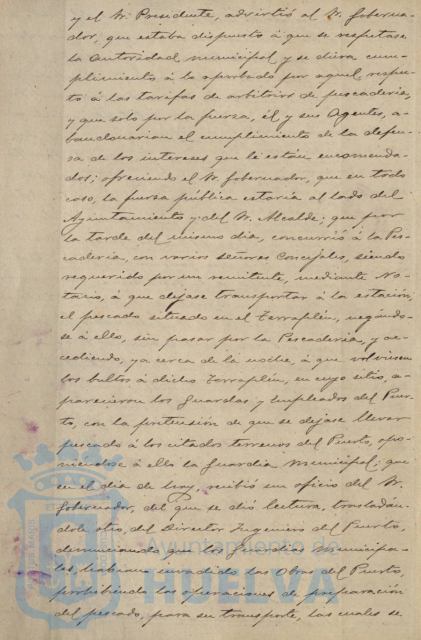 y el Sr. Presidente, advirtió al Sr. Goberna-
dor, que estaba dispuesto á que se respetase
la Autoridad municipal y se diera cum-
plimiento á lo aprobado por aquel respec-
to á las tarifas de arbitrios de pescadería,
y que solo por la fuerza, él y sus Agentes, a-
bandonarian el cumplimiento de la defen-
sa de los intereses que le están encomenda-
dos; ofreciendo el Sr. Gobernador, que en todo
caso, la fuerza pública estaria al lado del
Ayuntamiento y del Sr. Alcalde; que por
la tarde del mismo dia, concurrió á la Pes-
cadería, con varios señores Concejales, siendo
requerido por un remitente, mediante No-
tario, á que dejase transportar á la estación,
el pescado situado en el Terraplén, negándo-
se á ello, sin pasar por la Pescadería, y ac-
cediendo, ya cerca de la noche, á que volviesen
los bultos á dicho Terraplén, en cuyo sitio, a-
parecieron los Guardas y empleados del Puer-
to, con la pretensión de que se dejase llevar
pescado á los citados terrenos del Puerto, opo-
niendose á ello la Guardia Municipal; que
en el dia de hoy, recibió un oficio del Sr.
Gobernador, del que se dió lectura, trasladán-
dole otro, del Director Ingeniero del Puerto,
denunciando que los Guardias Municipa-
les habian invadido las Obras del Puerto,
prohibiendo las operaciones de preparación
del pescado, para su transporte, las cuales se
Ayuntamiento de
HUELVA